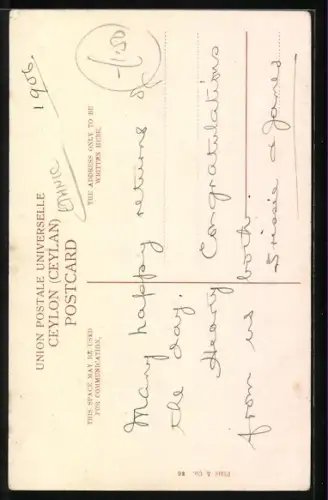 1906.
-/1.50
ETHNIC
UNION POSTALE UNIVERSELLE
CEYLON (CEYLAN)
POSTCARD
THIS SPACE MAY BE USED
FOR COMMUNICATION.
THE ADDRESS ONLY TO BE
WRITTEN HERE.
Many happy returns of
the day.
Hearty Congratulations
from us both.
& James
Plâté & Co. 86